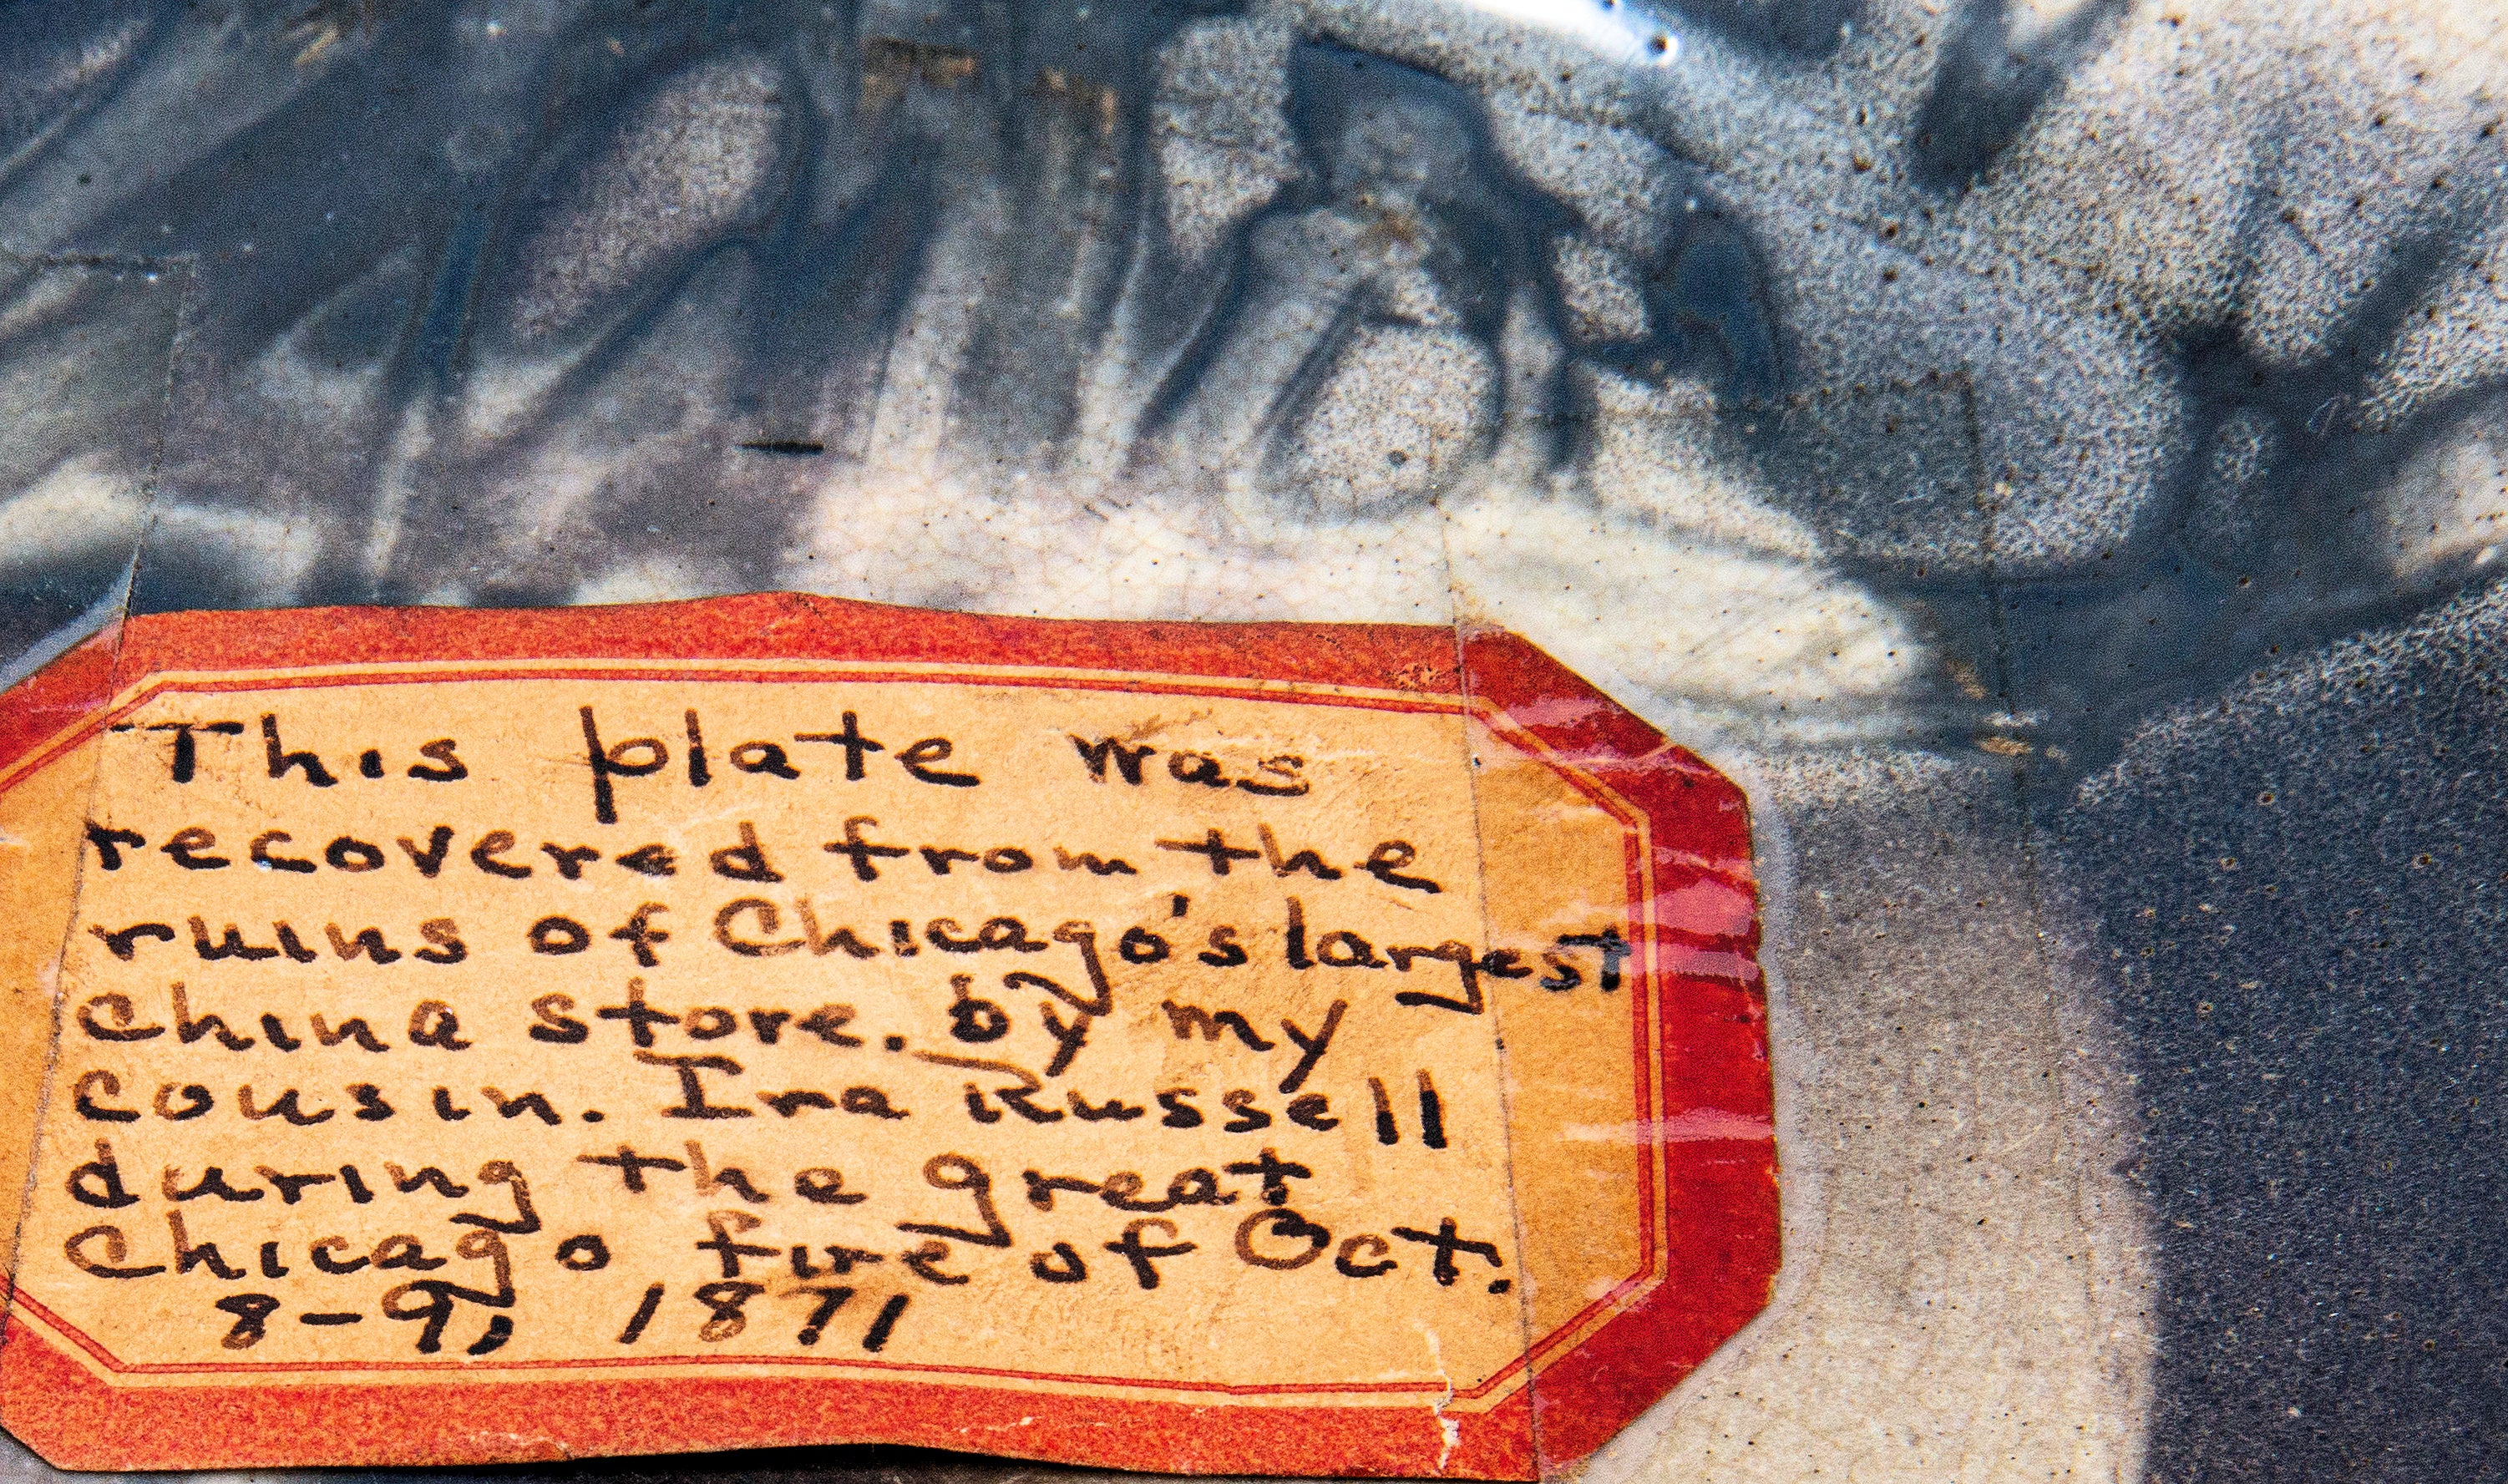 This plate was
recovered from the
ruins of Chicago's largest
china store. by my
cousin. Ira Russell
during the great
Chicago fire of Oct.
8-9, 1871